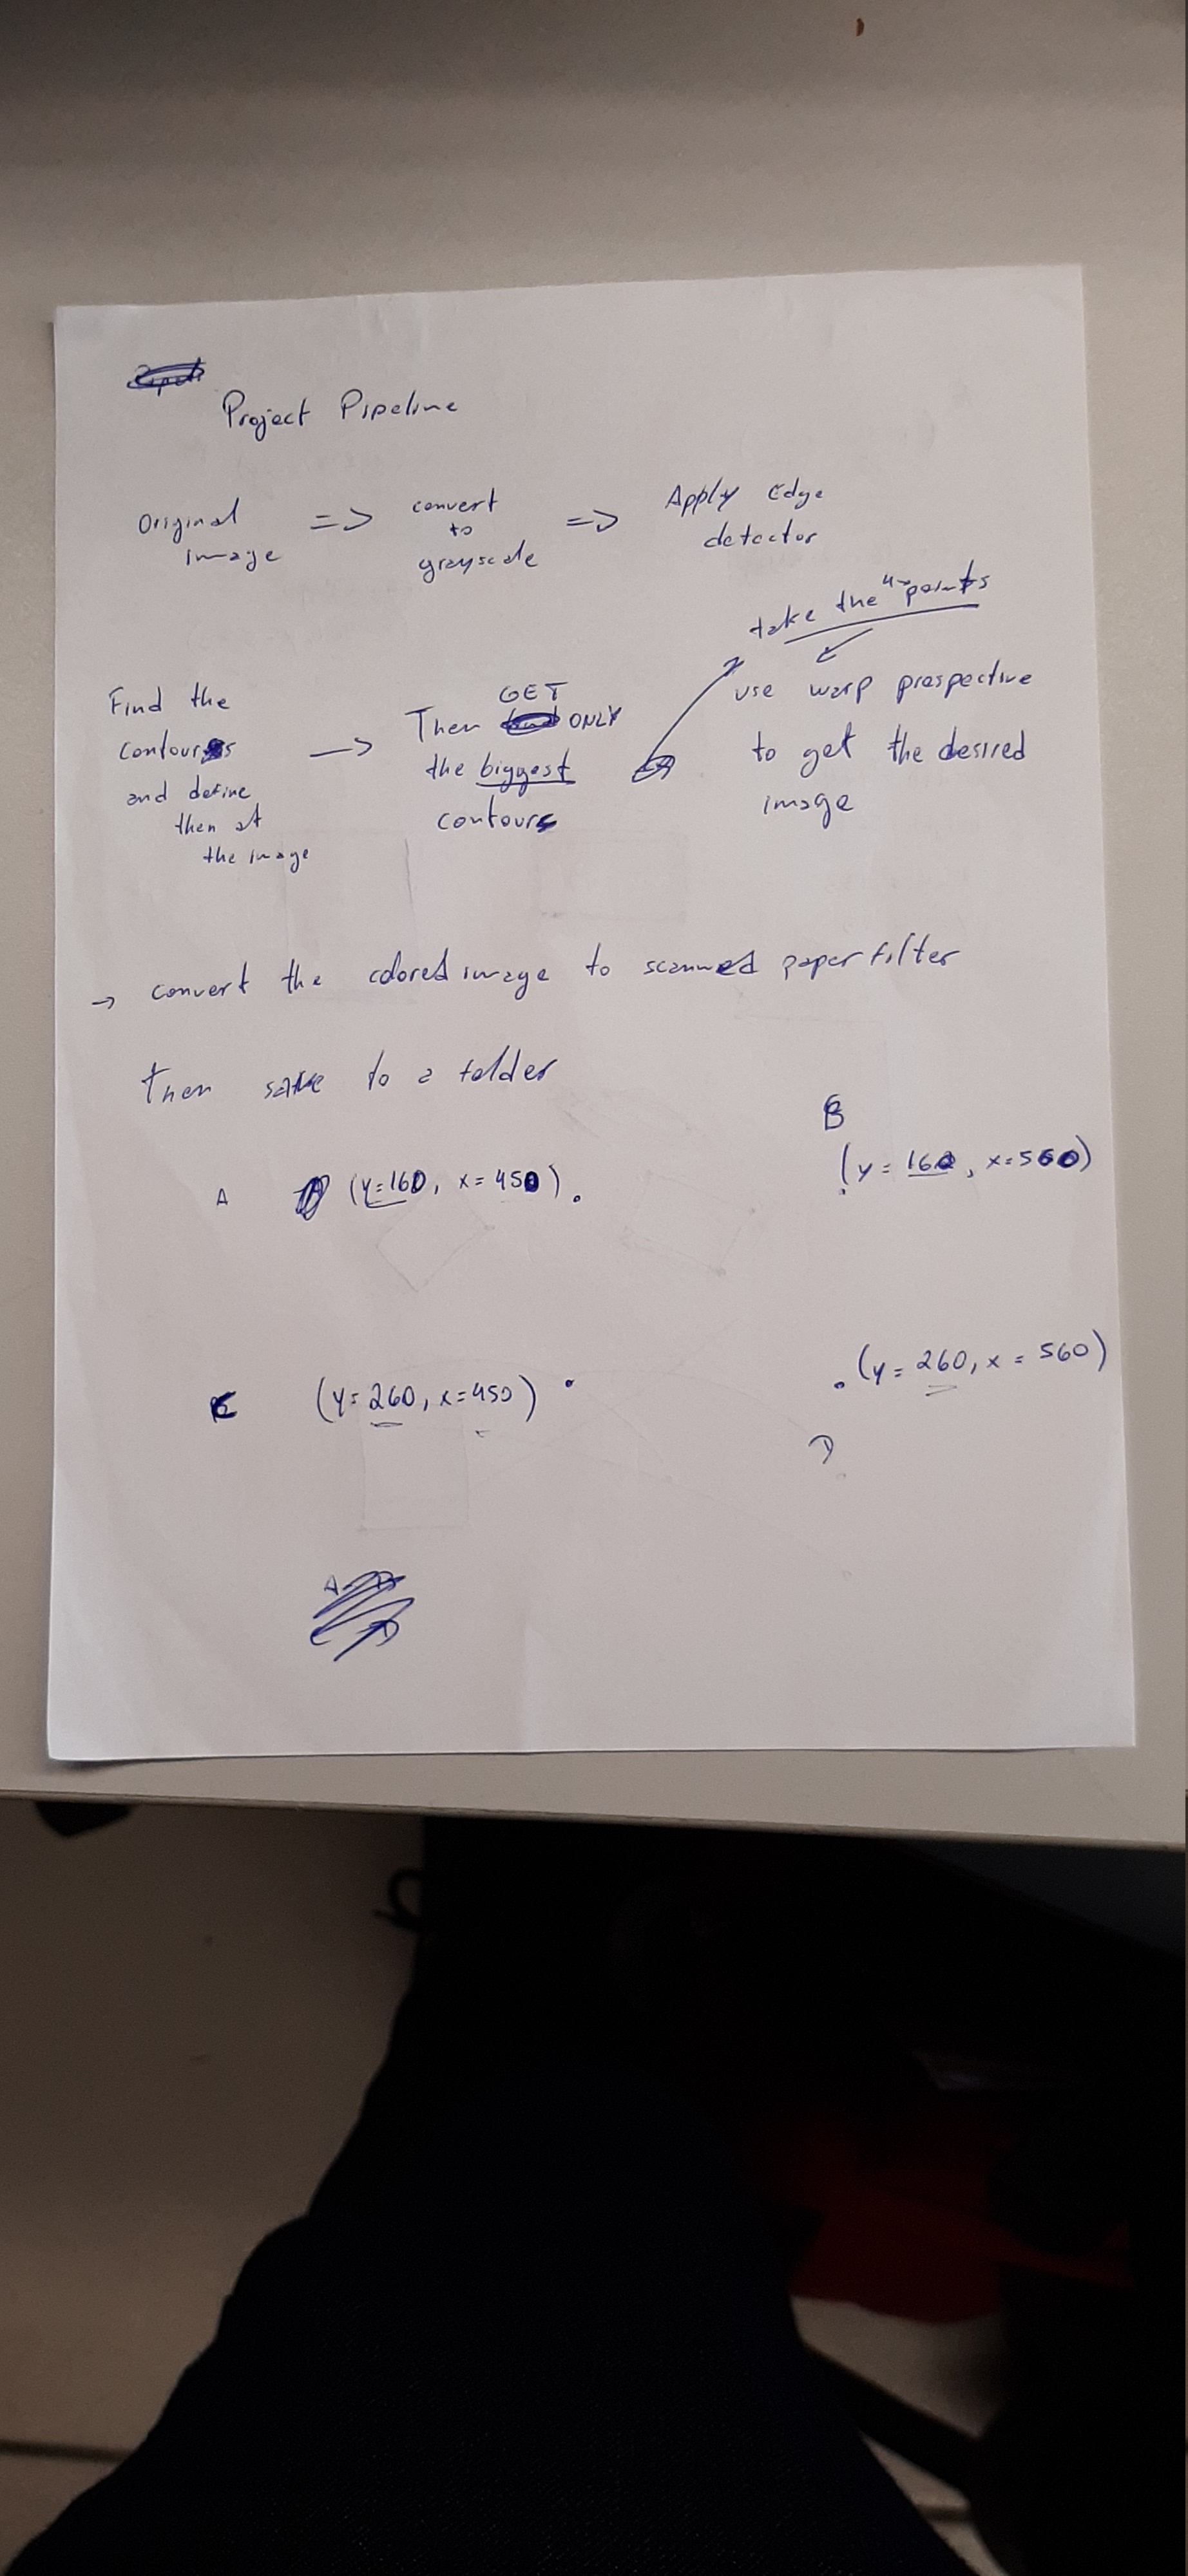 Project Pipeline
Original Image => convert to grayscale => Apply Edge detector
take the 4 points
Find the contours and define then at the image -> Then GET ONLY the biggest contours
use warp prospective to get the desired image
-> convert the colored image to scanned paper filter
then save to a folder
B
A (y=160, x=450) . (y=160, x=560)
C (y=260, x=450) . (y=260, x=560)
D